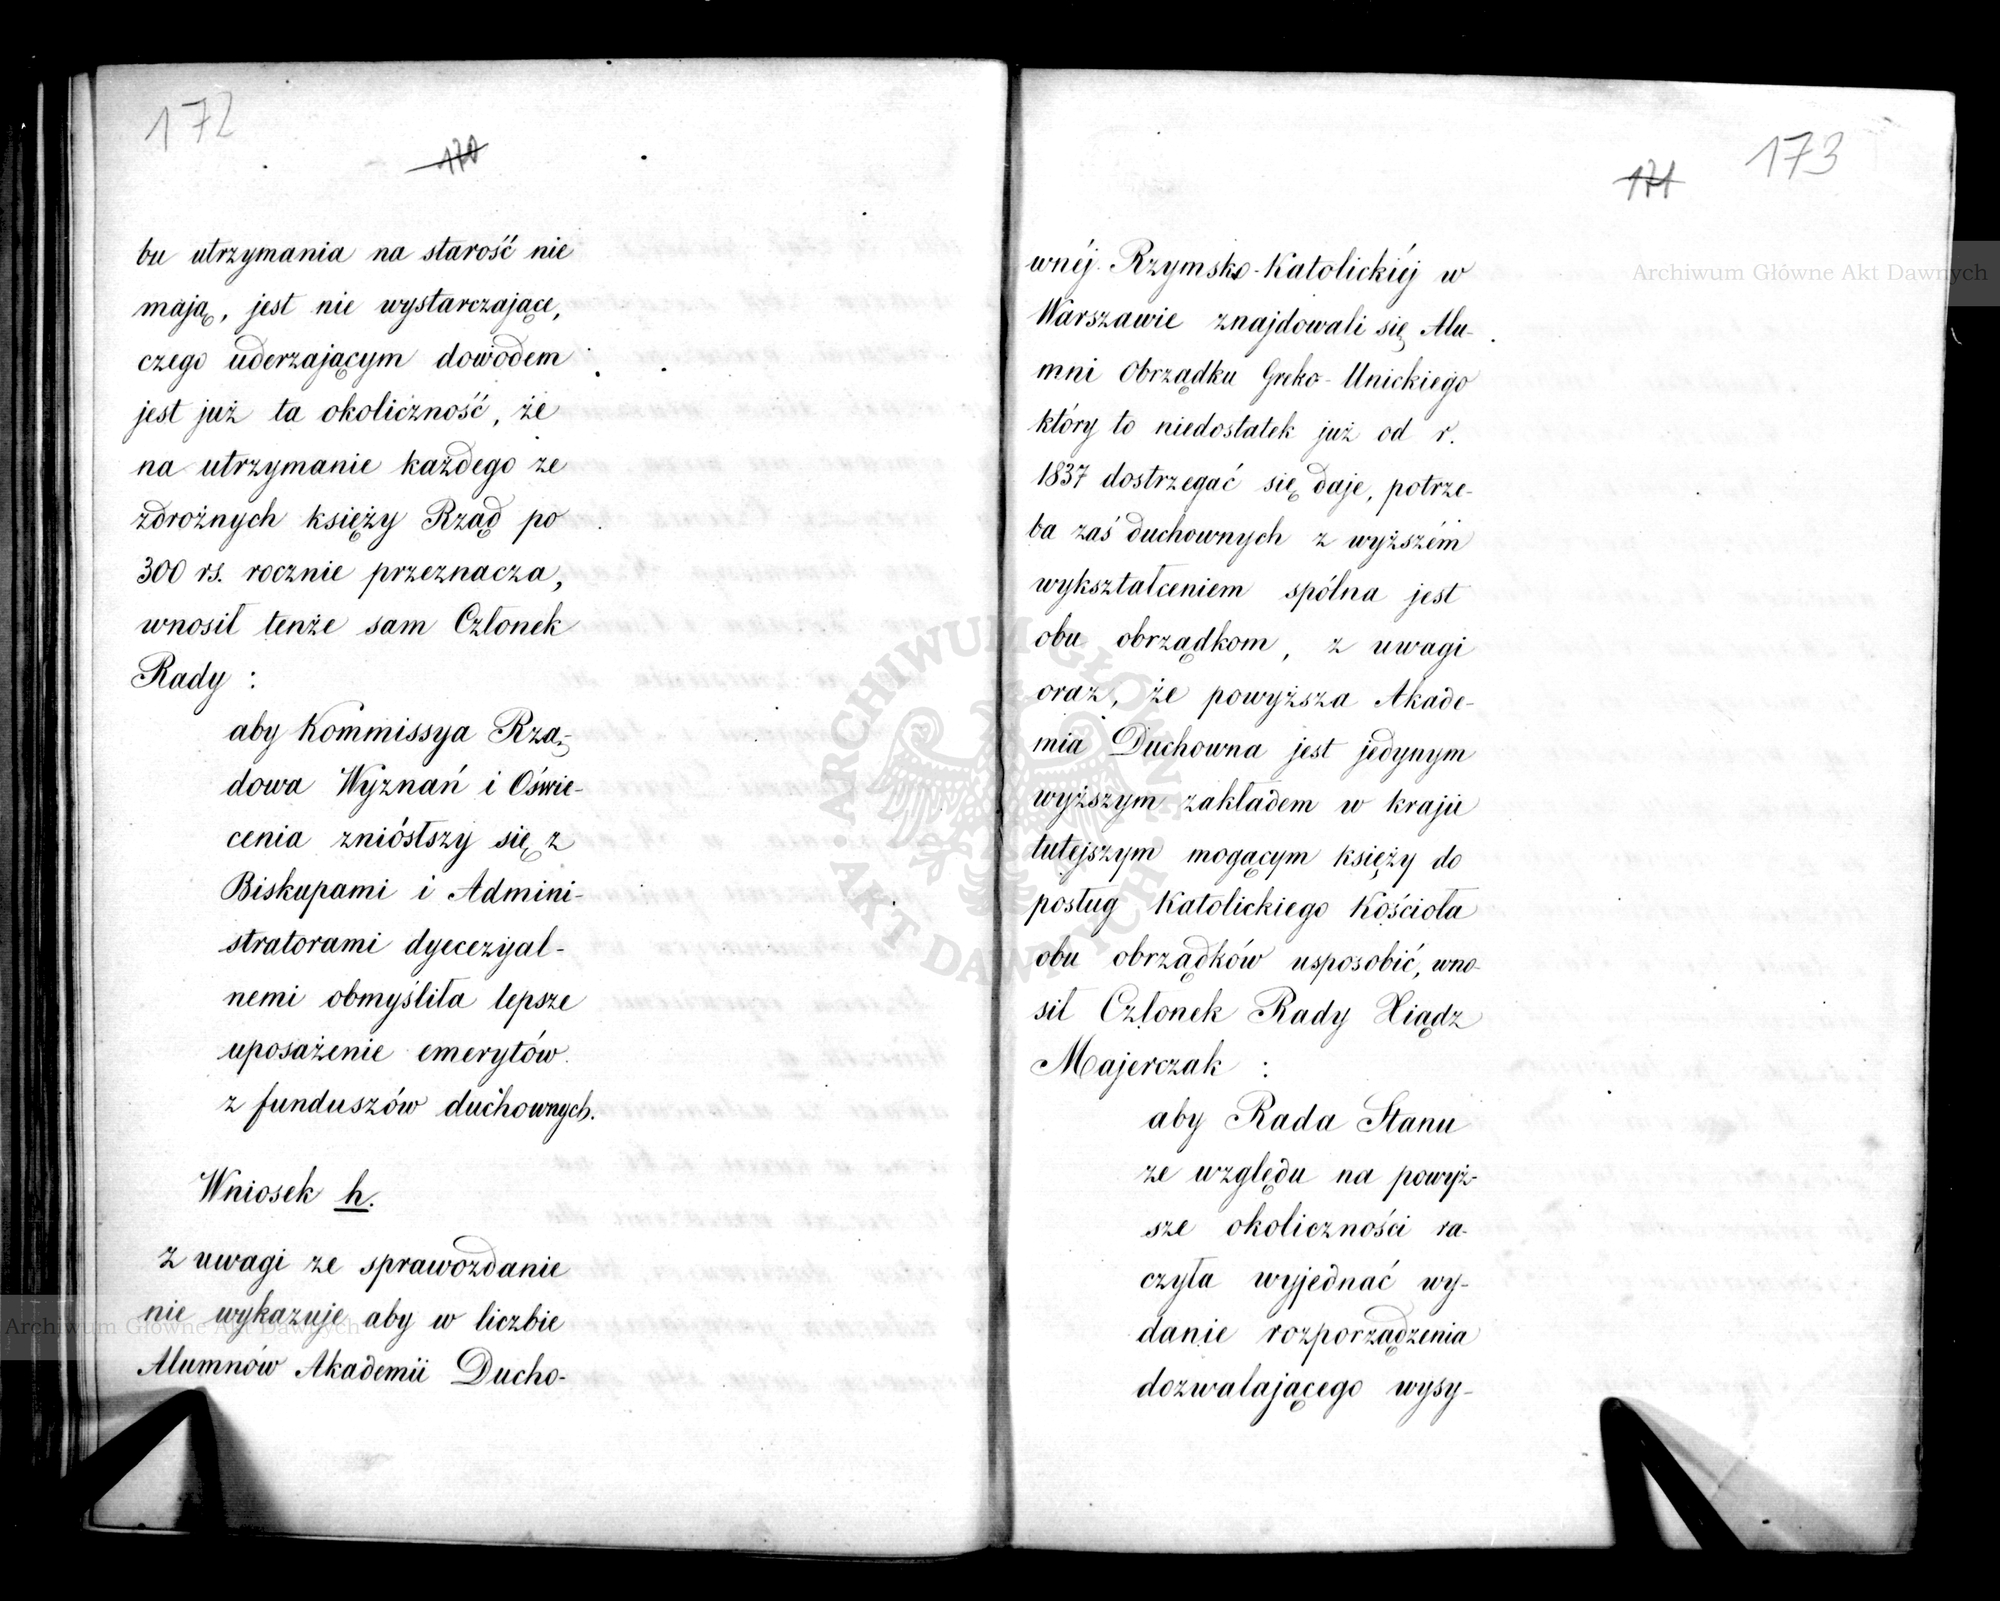 172
170
bu utrzymania na starość nie
mają, jest nie wystarczające,
czego uderzającym dowodem
jest już ta okoliczność, że
na utrzymanie każdego ze
zdrożnych księży Rząd po
300 rs. rocznie przeznacza,
wnosił tenże sam Członek
Rady :
aby Kommissya Rzą-
dowa Wyznań i Oświe-
cenia zniósłszy się z
Biskupami i Admini-
stratorami dyecezyal-
nemi obmyśliła lepsze
uposażenie emerytów
z funduszów duchownych.
Wniosek h.
Z uwagi że sprawozdanie
nie wykazuje aby w liczbie
Alumnów Akademii Ducho-
173
171
wnéj Rzymsko-Katolickiéj w
Warszawie znajdowali się Alu-
mni Obrządku Greko-Unickiego
który to niedostatek już od r.
1837 dostrzegać się daje, potrze-
ba zaś duchownych z wyższém
wykształceniem spólna jest
obu obrządkom, z uwagi
oraz, że powyższa Akade-
mia Duchowna jest jedynym
wyższym zakładem w kraju
tutejszym mogącym księży do
posług Katolickiego Kościoła
obu obrządków usposobić, wno-
sił Członek Rady Xiądz
Majerczak :
aby Rada Stanu
ze względu na powyż-
sze okoliczności ra-
czyła wyjednać wy-
danie rozporządzenia
dozwalającego wysy-
Archiwum Główne Akt Dawnych
Archiwum Główne Akt Dawnych
ARCHIWUM GŁÓWNE AKT DAWNYCH